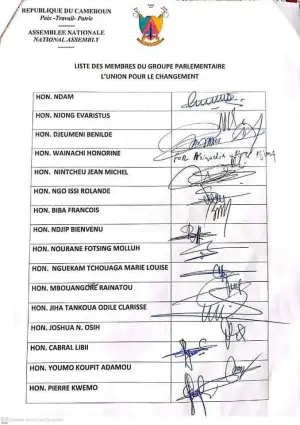 REPUBLIQUE DU CAMEROUN
Paix -Travail- Patrie
ASSEMBLEE NATIONALE
NATIONAL ASSEMBLY
LISTE DES MEMBRES DU GROUPE PARLEMENTAIRE
L'UNION POUR LE CHANGEMENT
HON. NDAM
HON. NJONG EVARISTUS
HON. DJEUMENI BENILDE
HON. WAINACHI HONORINE
HON. NINTCHEU JEAN MICHEL
HON. NGO ISSI ROLANDE
HON. BIBA FRANCOIS
HON. NDJIP BIENVENU
HON. NOURANE FOTSING MOLLUH
HON. NGUEKAM TCHOUAGA MARIE LOUISE
HON. MBOUANGOUE RAINATOU
HON. JIHA TANKOUA ODILE CLARISSE
HON. JOSHUA N. OSIH
HON. CABRAL LIBII
HON. YOUMO KOUPIT ADAMOU
HON. PIERRE KWEMO